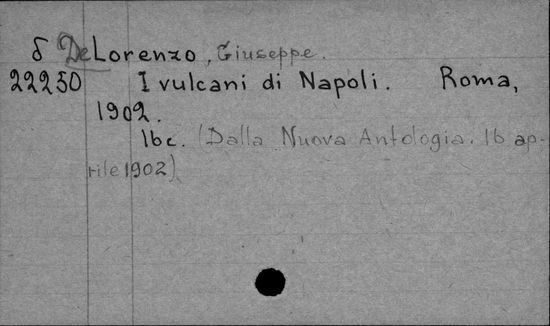 δ De Lorenzo, Giuseppe.
22250 I vulcani di Napoli. Roma,
1902.
16c. (Dalla Nuova Antologia. 16 ap-
rile 1902)